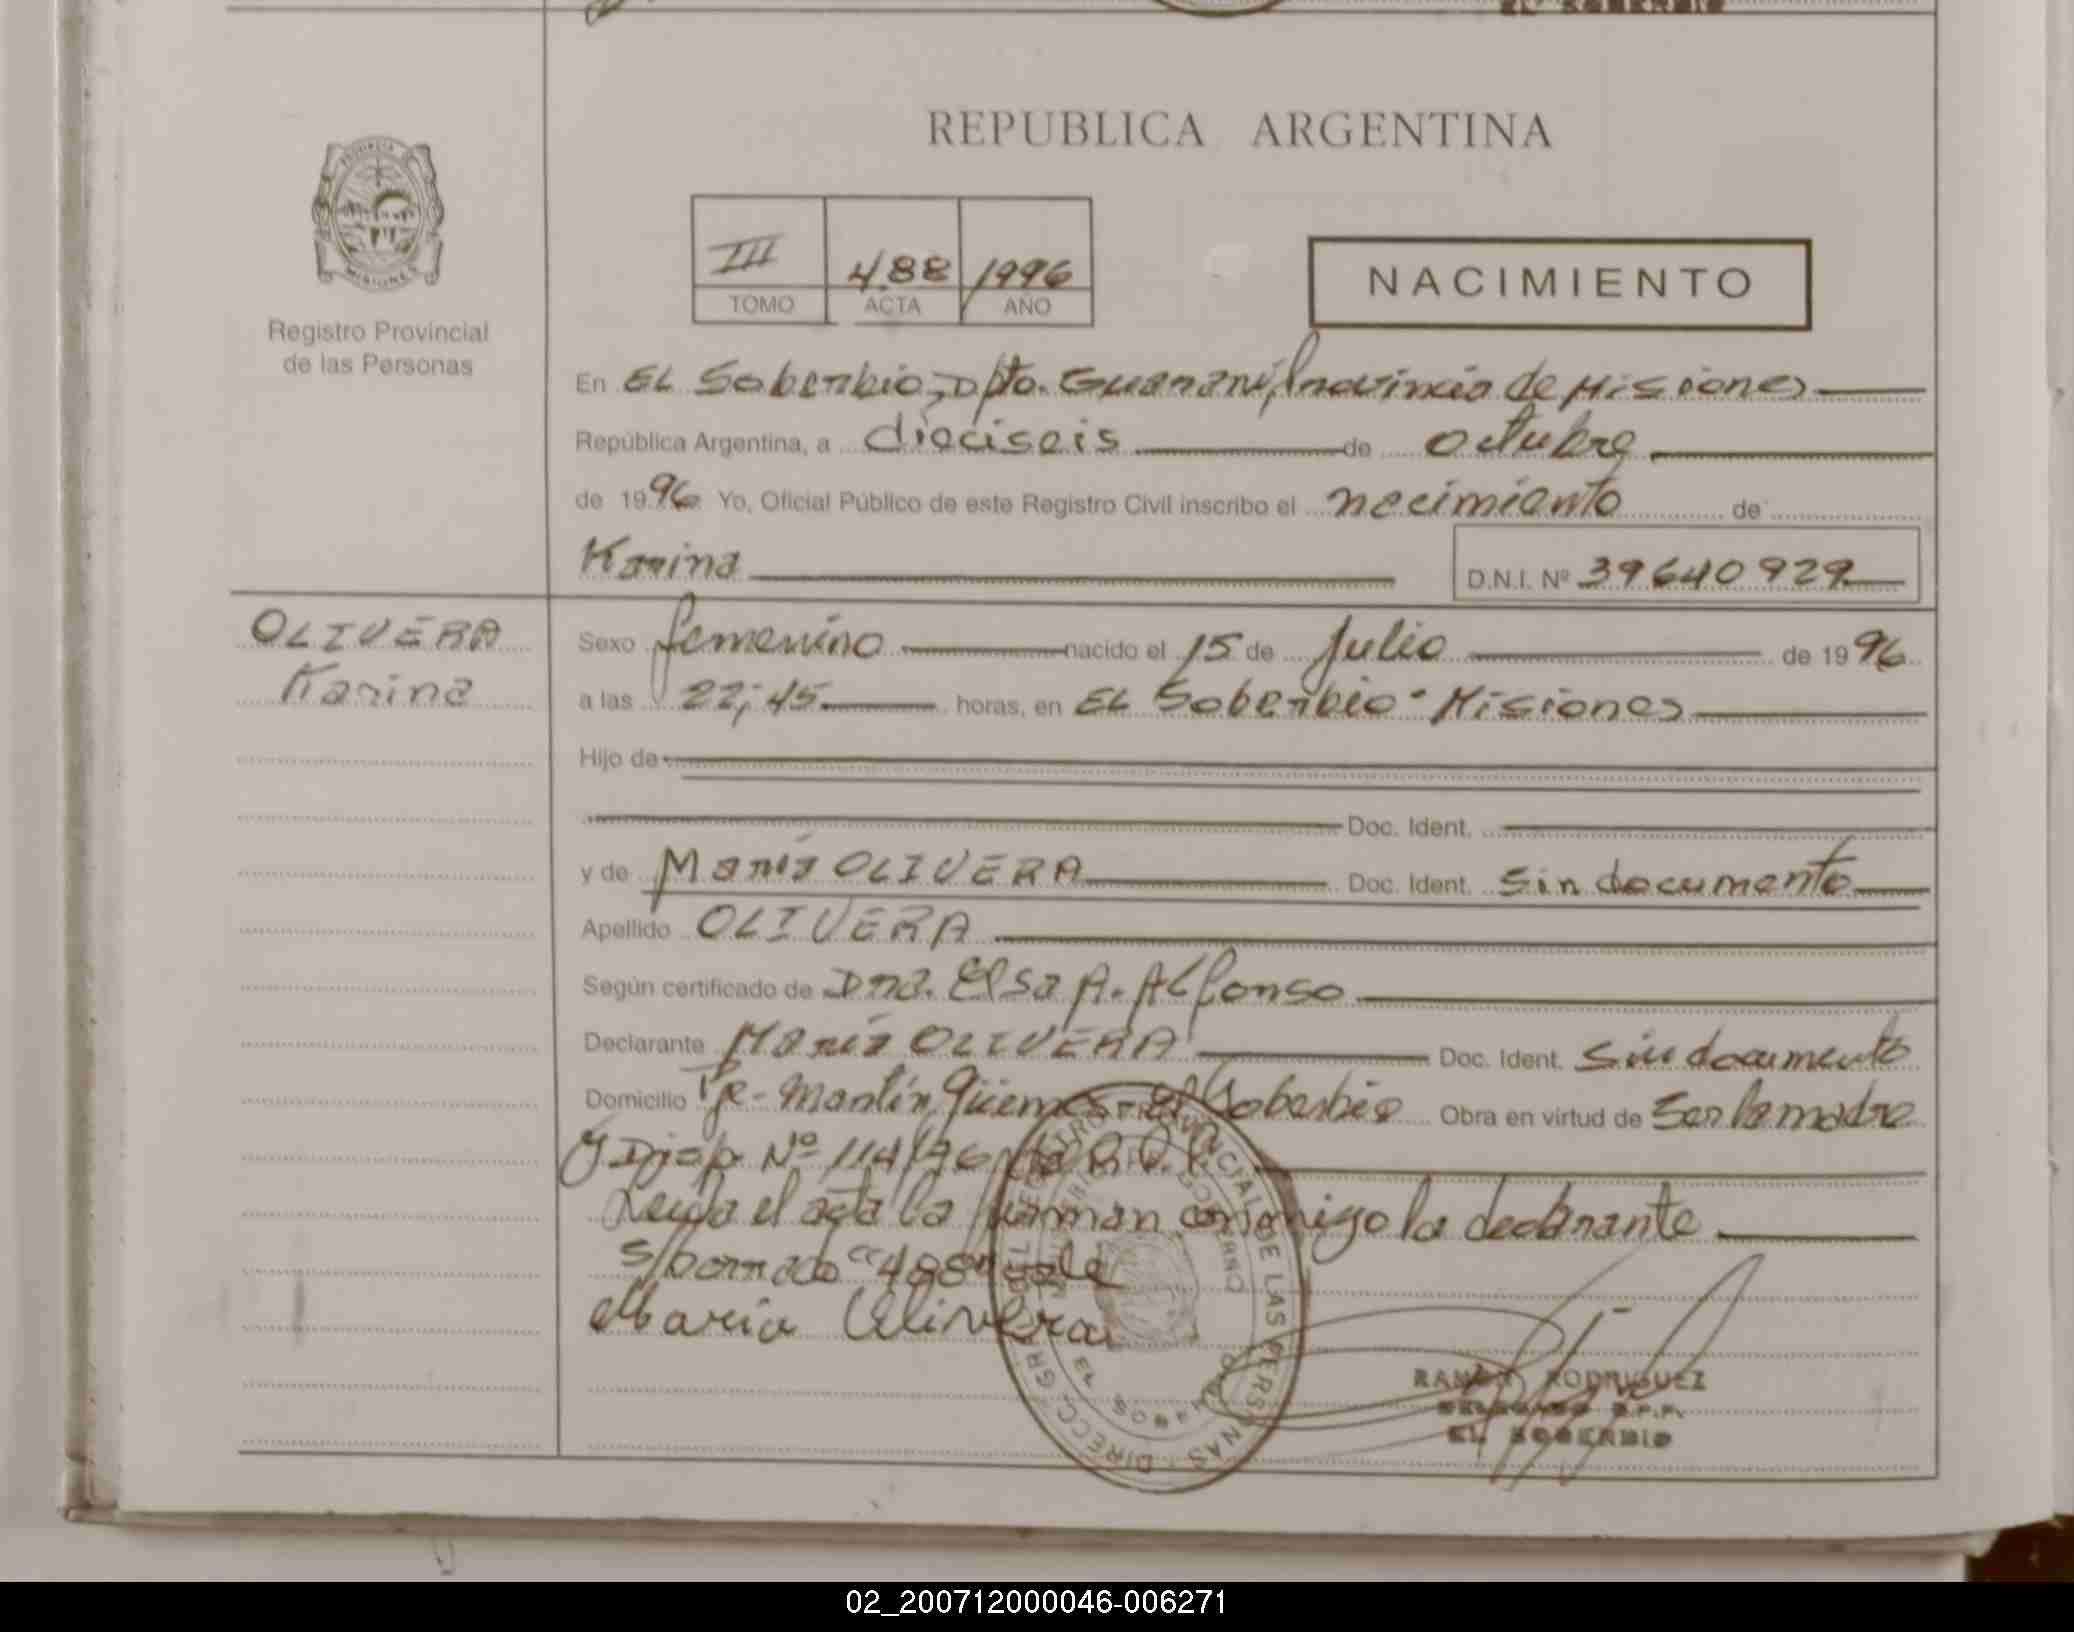 REPUBLICA ARGENTINA
PROVINCIA
MISIONES
Registro Provincial
de las Personas
III 488 1996
TOMO ACTA AÑO
NACIMIENTO
En EL Soberbio, Dpto. Guaraní, Provincia de Misiones
República Argentina, a dieciseis de octubre
de 1996 Yo, Oficial Público de este Registro Civil inscribo el nacimiento de
Karina D.N.I. Nº 39640929
OLIVERA
Karina
Sexo femenino nacido el 15 de Julio de 1996
a las 22,45 horas, en EL Soberbio - Misiones
Hijo de
Doc. Ident.
y de María OLIVERA Doc. Ident. Sin documento
Apellido OLIVERA
Según certificado de Dña. Elsa A. Alfonso
Declarante María OLIVERA Doc. Ident. Sin documento
Domicilio Pje - Martín Güemes - El Soberbio Obra en virtud de Ser la madre
y Disp Nº 114/96
Leída el acta la firman conmigo la declarante
s/borrado "488" vale
Maria Olivera
DIRECC. GRAL. REGISTRO PROVINCIAL DE LAS PERSONAS
EL SOBERBIO
RAMON RODRIGUEZ
DELEGADO R.P.P.
EL SOBERBIO
02_200712000046-006271